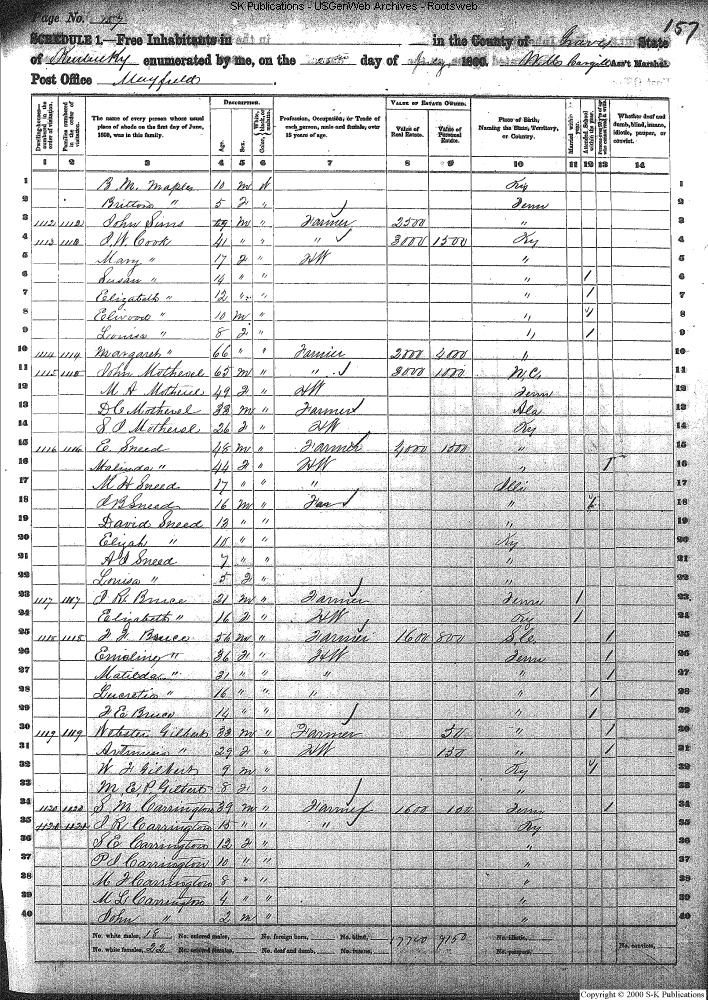 SK Publications - USGenWeb Archives - Rootsweb
Page No. 157
157
SCHEDULE 1.—Free Inhabitants in in the County of Graves State
of Kentucky enumerated by me, on the day of 1860. Ass't Marshal.
Post Office Mayfield
Dwelling-houses—numbered in the order of visitation.
Families numbered in the order of visitation.
The name of every person whose usual place of abode on the first day of June, 1860, was in this family.
Description.
Age.
Sex.
Color, White, black, or mulatto.
Profession, Occupation, or Trade of each person, male and female, over 15 years of age.
Value of Estate Owned.
Value of Real Estate.
Value of Personal Estate.
Place of Birth, Naming the State, Territory, or Country.
Married within the year.
Attended School within the year.
Whether deaf and dumb, blind, insane, idiotic, pauper, or convict.
1 2 3 4 5 6 7 8 9 10 11 12 13 14
1 B. M. Maples 10 m W Ky 1
2 Britton " 5 f " Tenn 2
3 1112 1112 John Sims m " Farmer 2500 " 3
4 1113 1113 J. W. Cook 41 " " " 3000 1500 Ky 4
5 Mary " 17 f " HW " 5
6 Susan " 14 " " " / 6
7 Elizabeth " 12 " " " / 7
8 Elwood " 10 m " " / 8
9 Louisa " 8 f " " / 9
10 1114 1114 Margaret " 66 " " Farmer 2000 4000 " 10
11 1115 1115 John Motheral 65 m " " 3000 1000 N.C. 11
12 M A Motheral 49 f " HW Tenn 12
13 D C Motheral 33 m " Farmer Ala 13
14 S J Motheral 26 f " HW Ky 14
15 1116 1116 E. Sneed 48 m " Farmer 4000 1500 " 15
16 Malinda " 44 f " HW " 1 16
17 M H Sneed 17 " " " Illi 17
18 J B Sneed 16 m " Far " 18
19 David Sneed 13 " " " 19
20 Elijah " 10 " " Ky 20
21 A J Sneed 7 " " " 21
22 Louisa " 5 f " " 22
23 1117 1117 J R Bruce 21 m " Farmer Tenn / 23
24 Elizabeth " 16 f " HW Ky / 24
25 1118 1118 F F Bruce 56 m " Farmer 1600 800 S.C. / 25
26 Emeline " 36 f " HW Tenn / 26
27 Matilda " 21 " " " " / 27
28 Lucretia " 16 " " " " / 28
29 F E Bruce 14 " " " / 29
30 1119 1119 Webster Gilbert 33 m " Farmer 50 " / 30
31 Artimisia " 29 f " HW 150 " / 31
32 W F Gilbert 9 m " Ky / 32
33 M E P Gilbert 8 f " " 33
34 1120 1120 S M Carrington 39 m " Farmer 1600 100 Tenn / 34
35 J R Carrington 15 " " " Ky 35
36 S E Carrington 12 f " " 36
37 P J Carrington 10 " " " 37
38 M F Carrington 8 " " " 38
39 M L Carrington 4 " " " 39
40 John " 2 m " " 40
No. white males, 18 No. colored males, No. foreign born, No. blind, 17700 9150 No. idiotic, No. convicts,
No. white females, 22 No. colored females, No. deaf and dumb, No. insane, No. paupers,
Copyright © 2000 S-K Publications